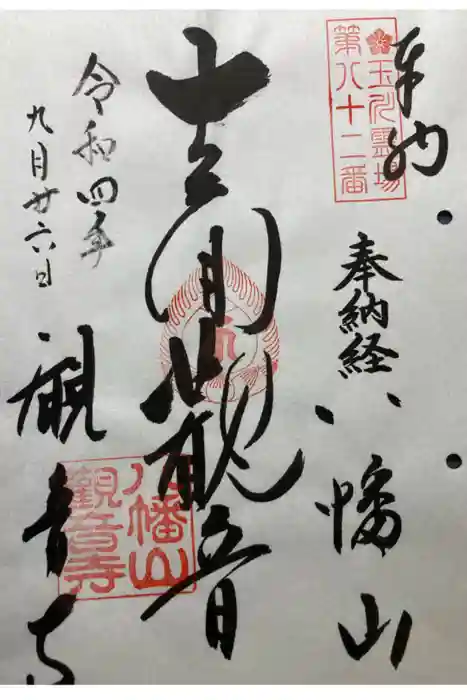 奉納
玉川霊場
第八十二番
奉納経
八幡山
十一面観音
八幡山
觀音寺
令和四年
九月廿六日
観音寺